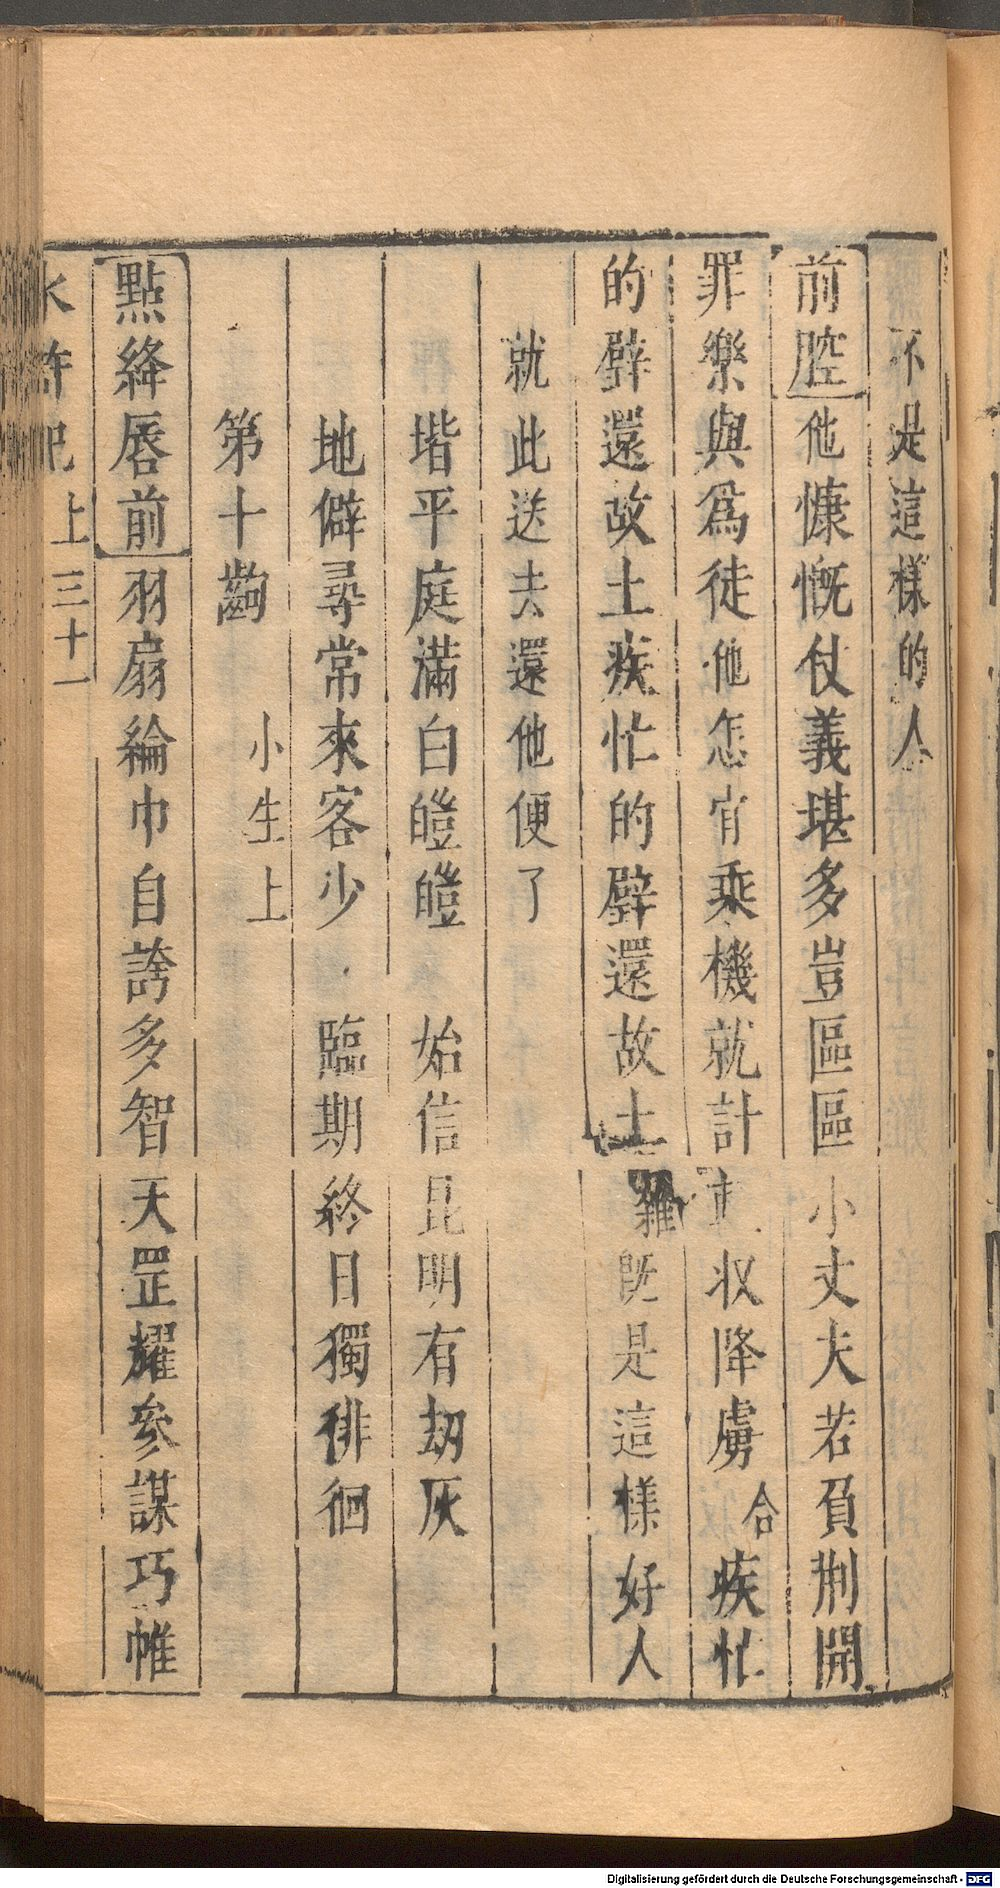 不是這樣的人
前腔他慷慨仗義堪多豈區區小丈夫若負荆開
罪樂與爲徒他怎肯乘機就計收降虜合疾忙
的璧還故土疾忙的璧還故土雜既是這樣好人
就此送去還他便了
堦平庭滿白皚皚 始信昆明有刼灰
地僻尋常來客少 臨期終日獨徘徊
第十齣 小生上
點絳唇前羽扇綸巾自誇多智天罡耀參謀巧帷
水滸記上三十一
Digitalisierung gefördert durch die Deutsche Forschungsgemeinschaft - DFG